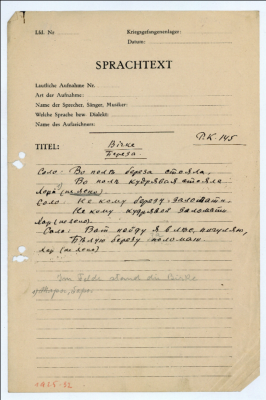 Lfd. Nr
Kriegsgefangenenlager:
Datum:
SPRACHTEXT
Lautliche Aufnahme Nr.
Art der Aufnahme:
Name der Sprecher, Sänger, Musiker:
Welche Sprache bzw. Dialekt:
Name des Aufzeichners:
P.K. 145
TITEL: Birke
Береза
Соло: Во поле береза стояла.
Во поле кудрявая стояла
Хор:
Соло: Не кому березу заломати.
Не кому кудряву заломати
Хор
Соло: Вот пойду я в лес, погуляю,
Белую березу поломаю
Хор
Im Felde stand die Birke